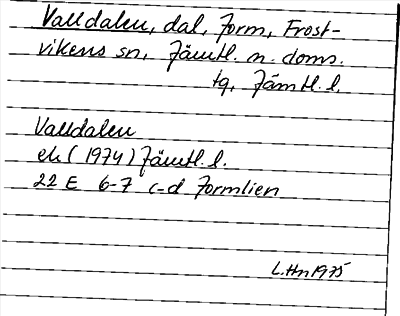 Valldalen, dal, Form, Frost-
vikens sn, Jämtl. n. doms.
tg, Jämtl. l.
Valldalen
ek (1974) Jämtl. l.
22 E 6-7 c-d Formlien
L.Hn 1975